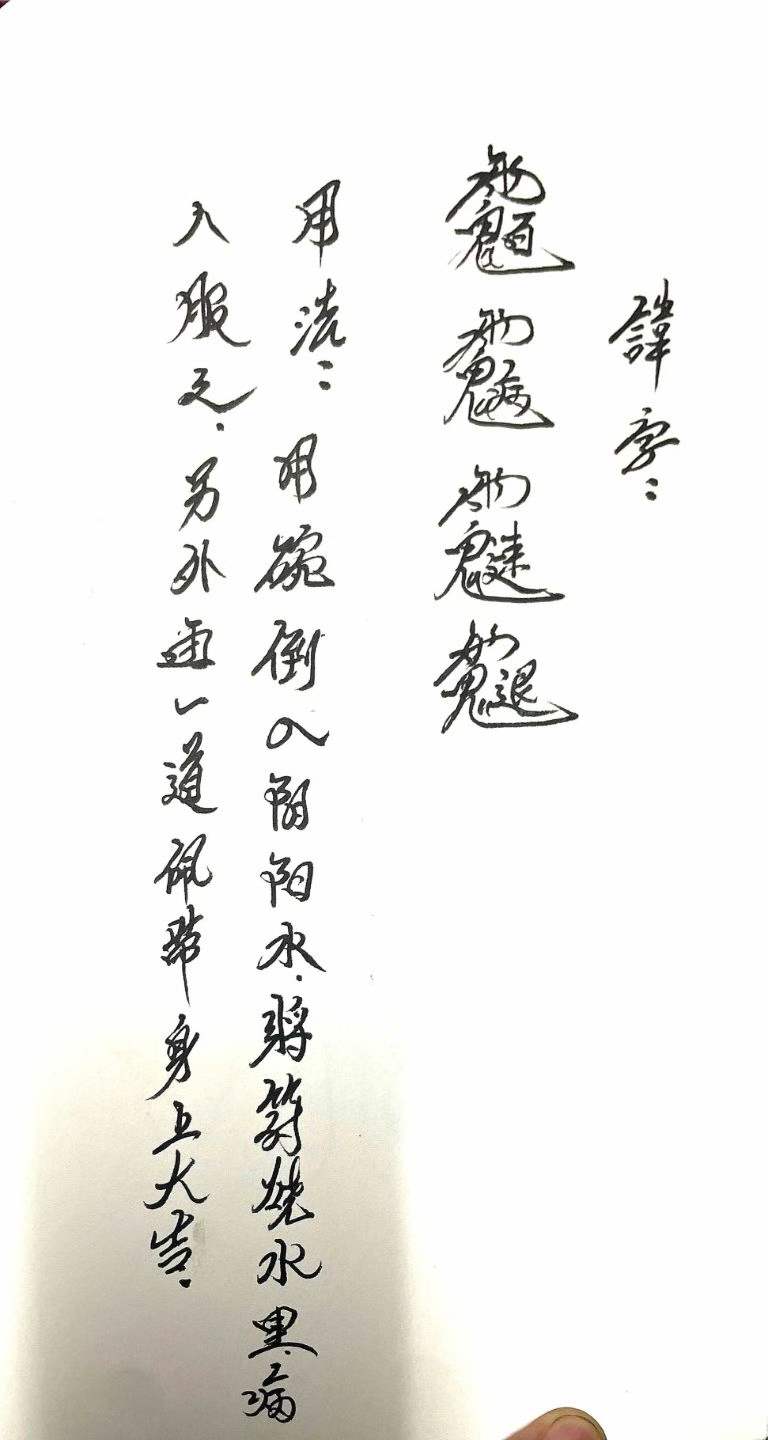 諱字：
用法：用碗倒入陰陽水．將符燒水里．病
人服之．另外画一道佩帶身上大吉．